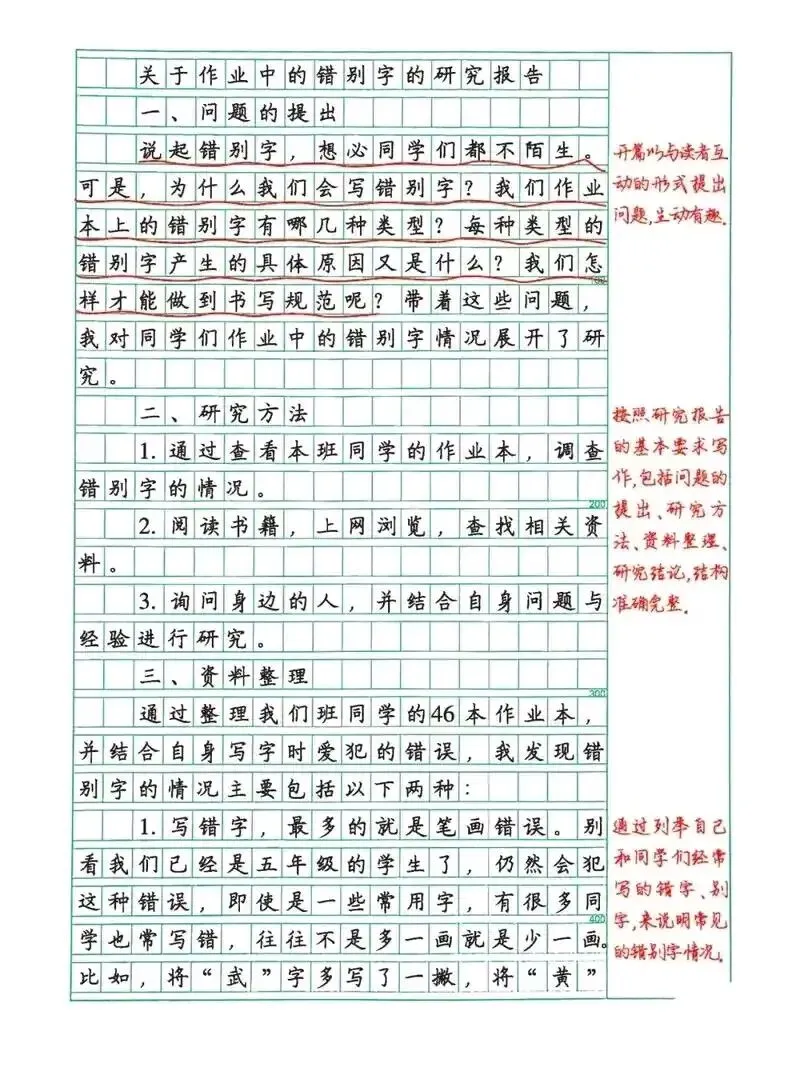 关于作业中的错别字的研究报告
一、问题的提出
说起错别字，想必同学们都不陌生。
可是，为什么我们会写错别字？我们作业
本上的错别字有哪几种类型？每种类型的
错别字产生的具体原因又是什么？我们怎
100
样才能做到书写规范呢？带着这些问题，
我对同学们作业中的错别字情况展开了研
究。
二、研究方法
1. 通过查看本班同学的作业本，调查
错别字的情况。
200
2. 阅读书籍，上网浏览，查找相关资
料。
3. 询问身边的人，并结合自身问题与
经验进行研究。
三、资料整理
300
通过整理我们班同学的46本作业本，
并结合自身写字时爱犯的错误，我发现错
别字的情况主要包括以下两种：
1. 写错字，最多的就是笔画错误。别
看我们已经是五年级的学生了，仍然会犯
这种错误，即使是一些常用字，有很多同
400
学也常写错，往往不是多一画就是少一画。
比如，将“武”字多写了一撇，将“黄”
开篇以与读者互
动的形式提出
问题，生动有趣。
按照研究报告
的基本要求写
作，包括问题的
提出、研究方
法、资料整理、
研究结论，结构
准确完整。
通过列举自己
和同学们经常
写的错字、别
字，来说明常见
的错别字情况。